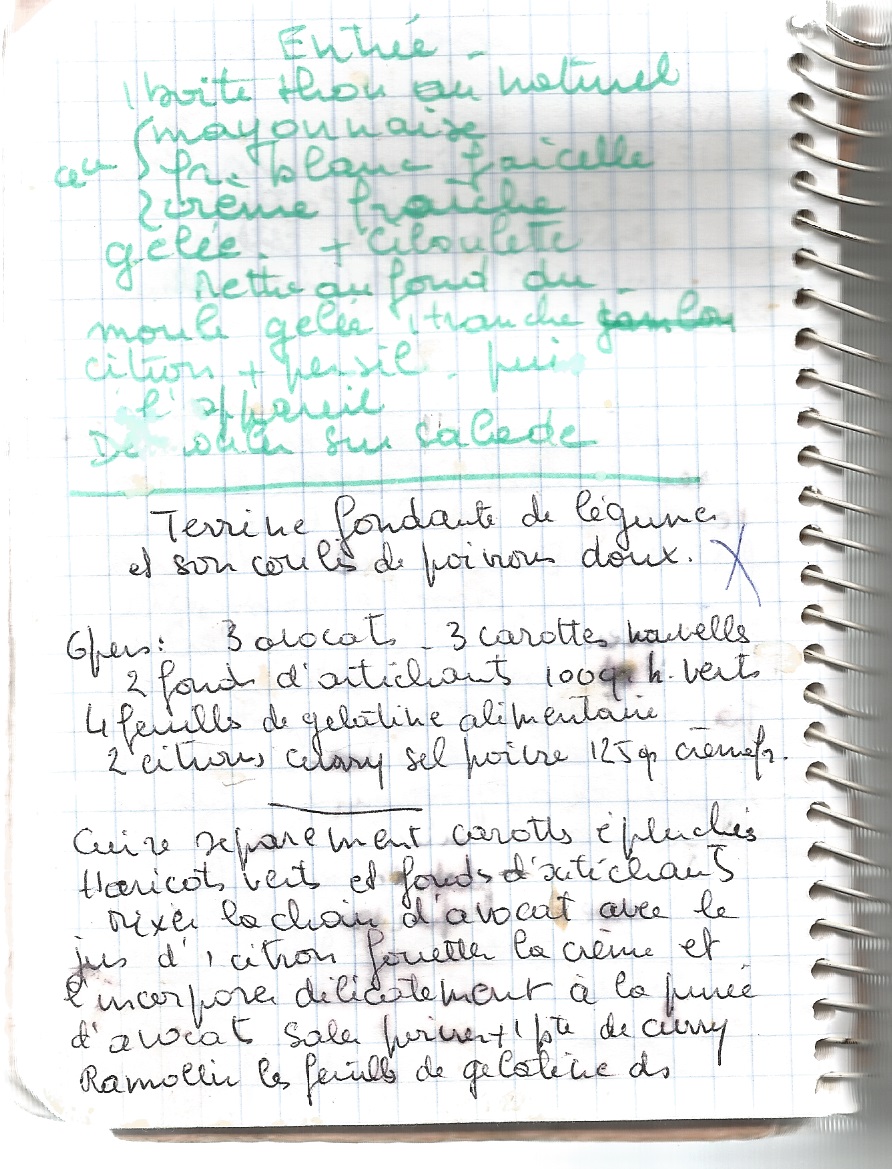 Entrée -
1 boite thon au naturel
mayonnaise
fr. blanc faicelle
crème fraîche
gélée. + ciboulette
Mettre au fond du
moule gelée 1 tranche
citron + persil. puis
l'appareil
Démouler sur salade
Terrine fondante de légumes
et son coulis de poivrons doux. X
6 pers: 3 avocats - 3 carottes nouvelles
2 fonds d'artichauts 100g. h. verts
4 feuilles de gelatine alimentaire
2 citrons curry sel poivre 125g crème fr.
Cuire separement carottes épluchés
Haricots verts et fonds d'artichauts
Mixer la chair d'avocat avec le
jus d'1 citron fouetter la crème et
l'incorporer délicatement à la purée
d'avocat saler poivrer + 1 pte de curry
Ramollir les feuilles de gelatine ds